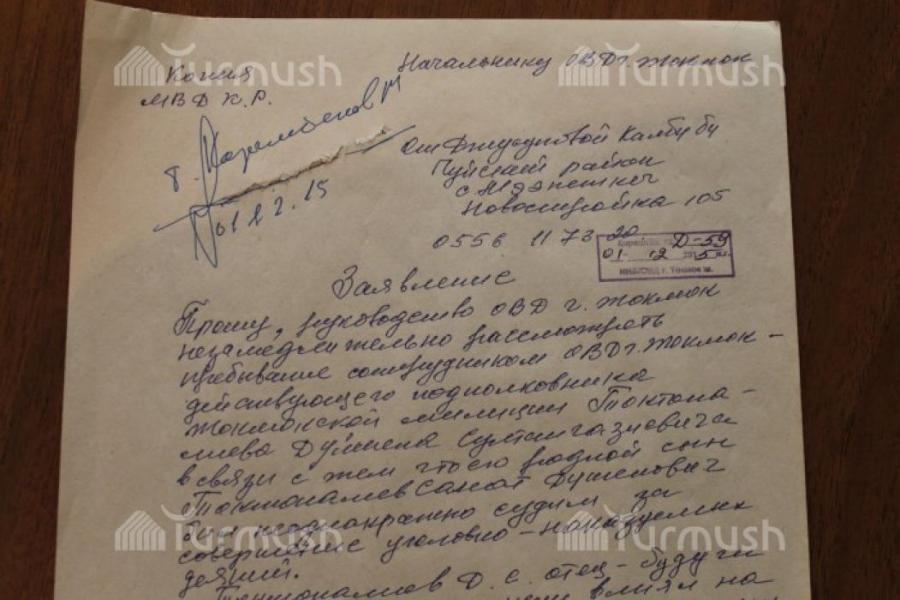 Turmush
Turmush
Копия
МВД К.Р.
01.12.15
Начальнику ОВД г. Токмок
От Джунуповой Калбубу
Чуйский район
с.
Новостройка 105
0556 11 73 20
Д-59
01- 12 2015
г. Токмок
Заявление
Прошу, руководство ОВД г. Токмок
незамедлительно рассмотреть
пребывание сотрудником ОВД г. Токмок -
действующего подполковника
Токмокской милиции Токтона-
лиева Дуйшена Султангазиевича
в связи с тем что его родной сын
Токтоналиев Самат Дуйшенович
был неоднократно судим за
совершение уголовно-наказуемых
деяний.
Токтоналиев Д.С. отец - будучи
влиял на
Turmush
Turmush